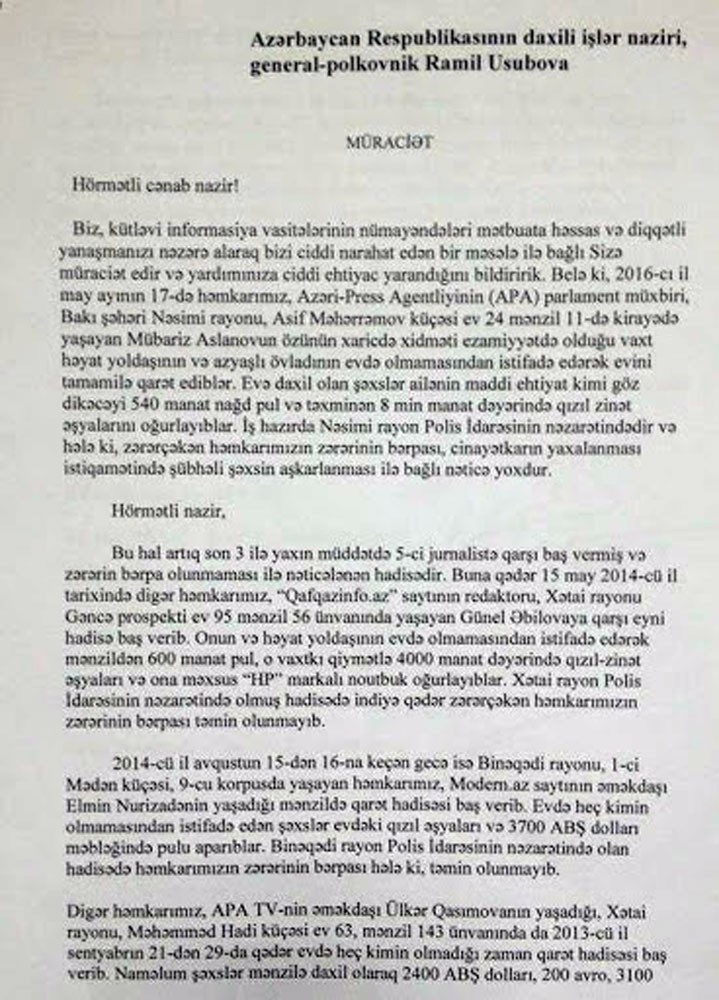 Azərbaycan Respublikasının daxili işlər naziri,
general-polkovnik Ramil Usubova
MÜRACİƏT
Hörmətli cənab nazir!
Biz, kütləvi informasiya vasitələrinin nümayəndələri mətbuata həssas və diqqətli
yanaşmanızı nəzərə alaraq bizi ciddi narahat edən bir məsələ ilə bağlı Sizə
müraciət edir və yardımınıza ciddi ehtiyac yarandığını bildiririk. Belə ki, 2016-cı il
may ayının 17-də həmkarımız, Azəri-Press Agentliyinin (APA) parlament müxbiri,
Bakı şəhəri Nəsimi rayonu, Asif Məhərrəmov küçəsi ev 24 mənzil 11-də kirayədə
yaşayan Mübariz Aslanovun özünün xaricdə xidməti ezamiyyətdə olduğu vaxt
həyat yoldaşının və azyaşlı övladının evdə olmamasından istifadə edərək evini
tamamilə qarət ediblər. Evə daxil olan şəxslər ailənin maddi ehtiyat kimi göz
dikəcəyi 540 manat nağd pul və təxminən 8 min manat dəyərində qızıl zinət
əşyalarını oğurlayıblar. İş hazırda Nəsimi rayon Polis İdarəsinin nəzarətindədir və
hələ ki, zərərçəkən həmkarımızın zərərinin bərpası, cinayətkarın yaxalanması
istiqamətində şübhəli şəxsin aşkarlanması ilə bağlı nəticə yoxdur.
Hörmətli nazir,
Bu hal artıq son 3 ilə yaxın müddətdə 5-ci jurnalistə qarşı baş vermiş və
zərərin bərpa olunmaması ilə nəticələnən hadisədir. Buna qədər 15 may 2014-cü il
tarixində digər həmkarımız, “Qafqazinfo.az” saytının redaktoru, Xətai rayonu
Gəncə prospekti ev 95 mənzil 56 ünvanında yaşayan Günel Əbilovaya qarşı eyni
hadisə baş verib. Onun və həyat yoldaşının evdə olmamasından istifadə edərək
mənzildən 600 manat pul, o vaxtkı qiymətlə 4000 manat dəyərində qızıl-zinət
əşyaları və ona məxsus “HP” markalı noutbuk oğurlayıblar. Xətai rayon Polis
İdarəsinin nəzarətində olmuş hadisədə indiyə qədər zərərçəkən həmkarımızın
zərərinin bərpası təmin olunmayıb.
2014-cü il avqustun 15-dən 16-na keçən gecə isə Binəqədi rayonu, 1-ci
Mədən küçəsi, 9-cu korpusda yaşayan həmkarımız, Modern.az saytının əməkdaşı
Elmin Nurizadənin yaşadığı mənzildə qarət hadisəsi baş verib. Evdə heç kimin
olmamasından istifadə edən şəxslər evdəki qızıl əşyaları və 3700 ABŞ dolları
məbləğində pulu aparıblar. Binəqədi rayon Polis İdarəsinin nəzarətində olan
hadisədə həmkarımızın zərərinin bərpası hələ ki, təmin olunmayıb.
Digər həmkarımız, APA TV-nin əməkdaşı Ülkər Qasımovanın yaşadığı, Xətai
rayonu, Məhəmməd Hadi küçəsi ev 63, mənzil 143 ünvanında da 2013-cü il
sentyabrın 21-dən 29-da qədər evdə heç kimin olmadığı zaman qarət hadisəsi baş
verib. Naməlum şəxslər mənzilə daxil olaraq 2400 ABŞ dolları, 200 avro, 3100